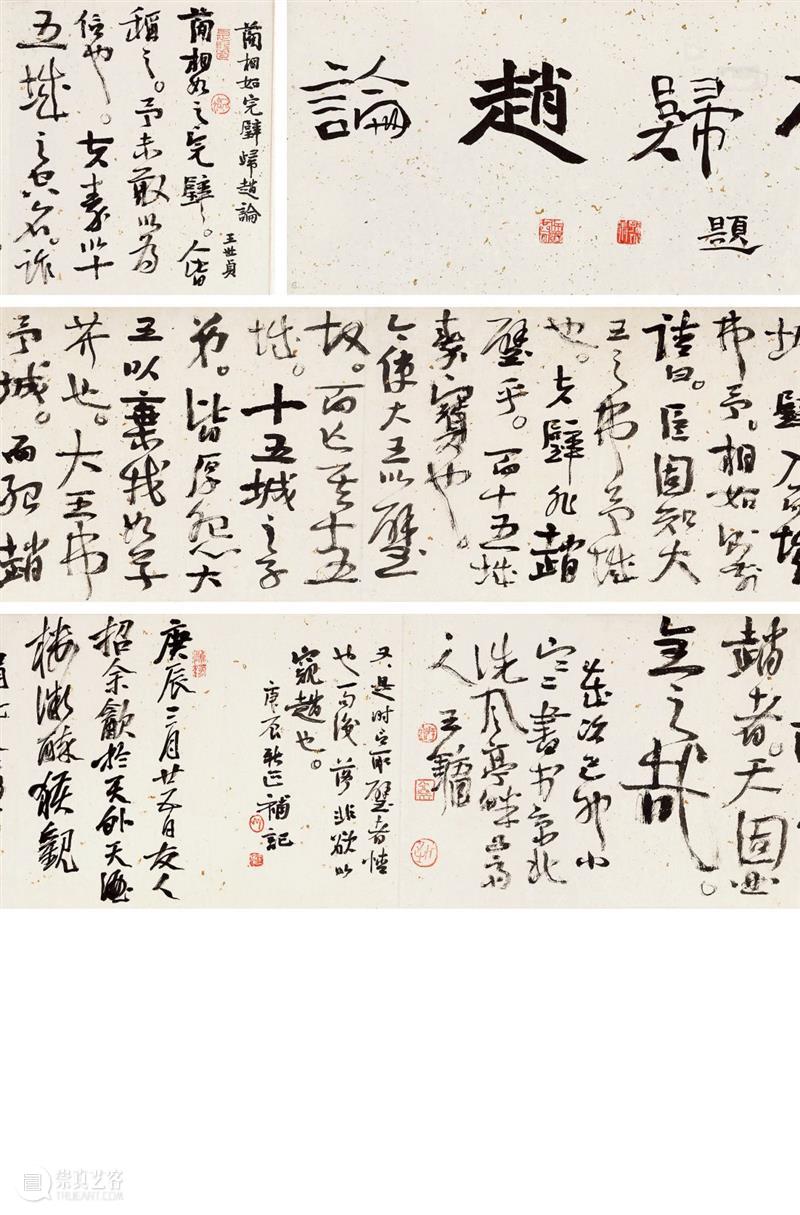 歸趙論
題
藺相如完璧歸趙論
王世貞
藺相如之完璧。人皆
稱之。予未敢以為
信也。夫秦以十
五城之空名。詐
璧入而城
弗予。相如則前
請曰。臣固知大
王之弗予城
也。夫璧非趙
璧乎。而十五城
秦寶也。
今使大王以璧
故。而亡其十五
城。十五城之子
弟。皆厚怨大
王以棄我如草
芥也。大王弗
予城。而紿趙
趙者。天固曲
全之哉。
歲次己卯小
書於京北
洗風亭畔
王鏞
又是时言取璧者情
也一句後落非欲以
窺趙也。
庚辰秋 補記
庚辰二月廿五日友人
招余飲於天外天酒
樓微醉獲觀
崇真艺客
TRUEART.COM